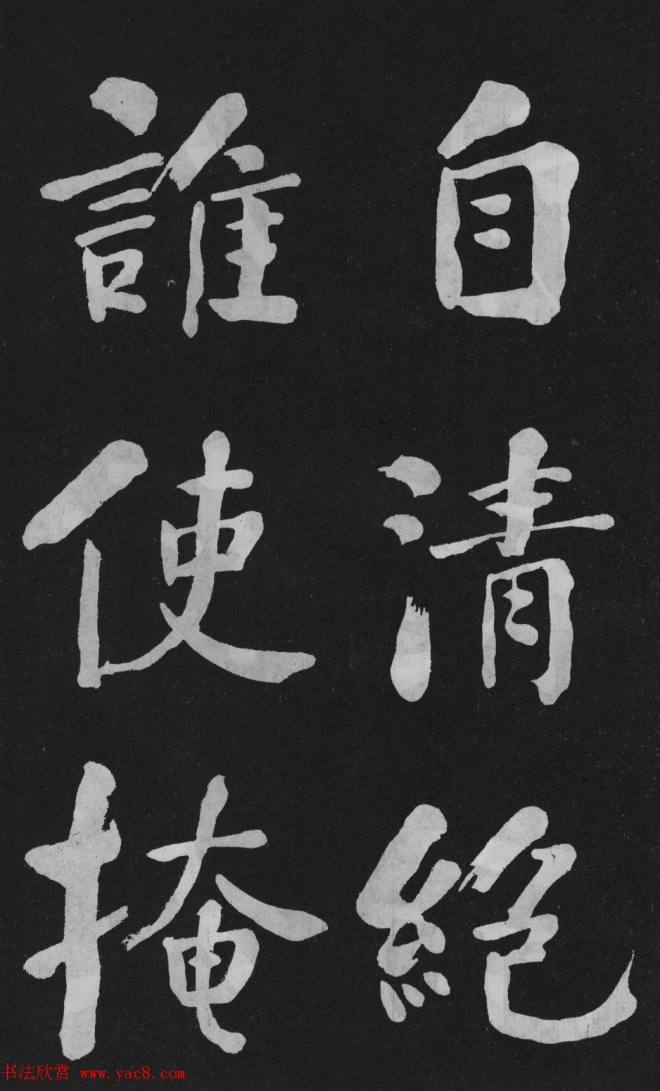 自清絕
誰使掩
书法欣赏 www.yac8.com